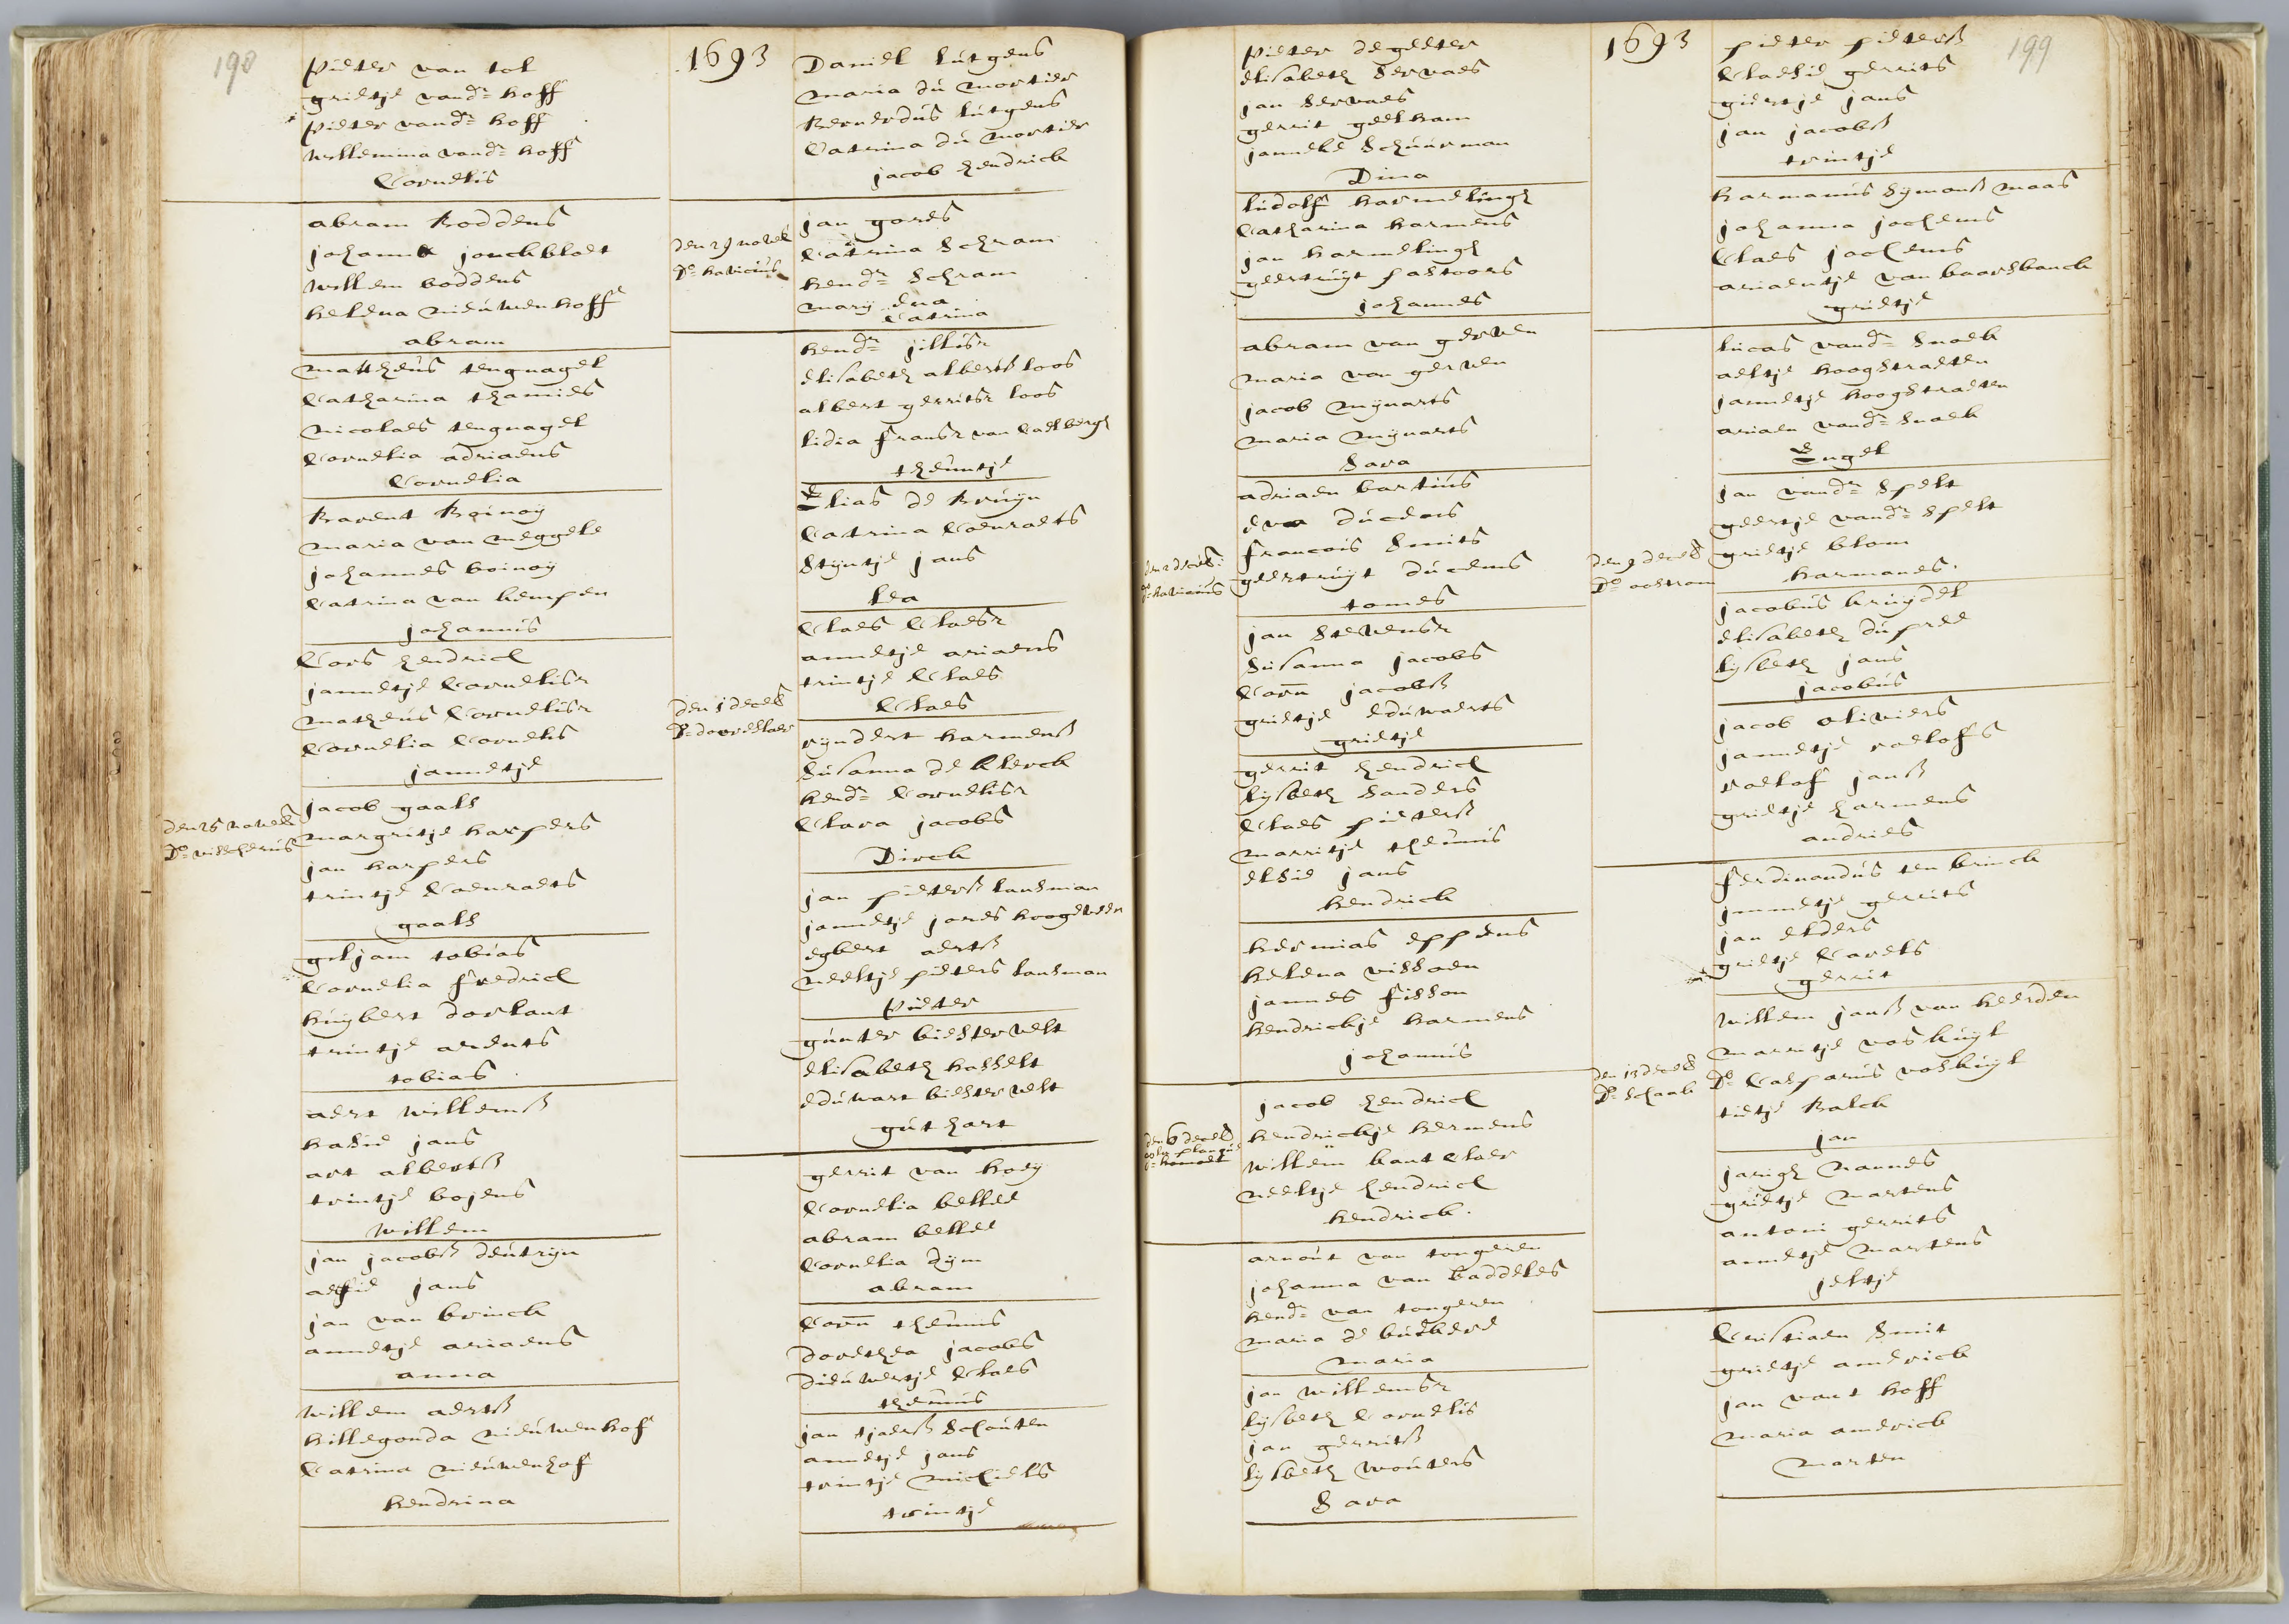 198
Pieter van tol
grietje vandr hoff
Pieter vandr hoff
Willemina vandr hoff
Cornelis
abram Boddens
johanna jonckbloet
Willem boddens
helena nieuwenhoff
abram
Mattheus tengnagel
Catharina thamies
Nicolaes tengnagel
Cornelia adriaens
Cornelia
Barent Boinoij
Maria van Meggele
johannes boinoij
Catrina van kempen
johannis
Cors hendrick
jannetje Cornelisz
Matheus Cornelisz
Cornelia Cornelis
jannetje
den 25 noveb
Do visscherus
jacob gaals
Margritje harpers
jan harpers
trintje Coenraets
gaals
giljam tobias
Cornelia fredrick
huijbert dorlant
trintje arents
tobias
aert Willemsz
hasie jans
art albertsz
trintje bojens
Willem
jan jacobsz deutrijn
aefie jans
jan van brinck
annetje ariaens
anna
Willem aertsz
hillegonda nieuwenhof
Catrina nieuwenhof
hendrina
1693
Daniel lutgens
Maria du Mortier
Bernerdus lutgens
Catrina du Mortier
jacob hendrick
den 29 noveb
Do havicius
jan gores
Catrina Schram
hendr Schram
Marij
Catrina
hendr jillisz
Elisabeth albertsz loos
albert gerritsz loos
lidia fransz van Caelbergh
theuntje
Elias de Bruijn
Catrina Coenraets
Stijntje jans
lea
Claes Claesz
annetje ariaens
trintje Claes
Claes
den 1 deceb
Do dooreslaer
rijndert harmensz
Susanna de klerck
hendr Cornelisz
Clara jacobs
Dirck
jan pietersz lansman
jannetje jores hoogeveen
egbert aertsz
neeltje pieters lansman
Pieter
gunter biestervelt
elisabeth hasselt
eduwart biestervelt
guthart
gerrit van hoeij
Cornelia bellee
abram bellee
Cornelia dijm
abram
Corn theunis
Dorethea jacobs
Dieuwertje Claes
theunis
jan tjaersz Schouten
annetje jans
trintje Michiels
trintje
Pieter de geeter
elisabeth Servaes
jan Servaes
gerrit geelham
janneke Schuurman
Dina
ludolf harmelingh
Catharina harmens
jan harmelingh
geertruijt pastoors
johannes
abram van gerven
Maria van gerven
jacob Mijnarts
Maria Mijnarts
Sara
den 2 deceb
Do havicius
adriaen bartius
eva ducens
francois Smits
geertruijt ducens
tomes
jan Stevensz
Susanna jacobs
Corn jacobsz
grietje eduwaerts
grietje
gerrit hendrick
lijsbeth Sanders
Claes pietersz
Marritje theunis
elsie jans
hendrick
hermias eppens
helena vissoen
jannes fisson
hendrickje harmens
johannis
den 6 deceb
jacob hendrick
hendrickje hermens
Willem kantelaer
neeltje hendrick
hendrick
arnout van tongeren
johanna van baddeles
hendr van tongeren
Maria de buckere
Maria
jan Willemsz
lijsbeth Cornelis
jan gerritsz
lijsbeth Wouters
Sara
1693
199
pieter pietersz
Claesie gerrits
giertje jans
jan jacobsz
trintje
harmanus Sijmonsz Maas
johanna jochems
Claes jochems
ariaentje van baarsbanck
grietje
lucas vandr Snoeb
aeltje hoogstraeten
jannetje hoogstraeten
ariaen vandr Snoeb
Engel
den 9 deceb
Do oostrom
jan vandr Spelt
geertje vandr Spelt
grietje blom
harmanes
jacobus kruijdel
elisabeth du pree
lijsbeth jans
jacobus
jacob oliviers
jannetje roelofs
roelof jansz
grietje harmens
andries
ferdinandus ten brinck
jannetje gerrits
jan elders
grietje Carels
gerrit
den 13 deceb
Do Schaak
Willem jansz van heerden
Marritje voskuijl
Do Casparus voskuijl
tietje Balck
jan
jarigh Mannes
grietje Martens
antoni gerrits
annetje Martens
jeltje
Cristiaen Smit
grietje americk
jan vant hoff
Maria americk
Marten